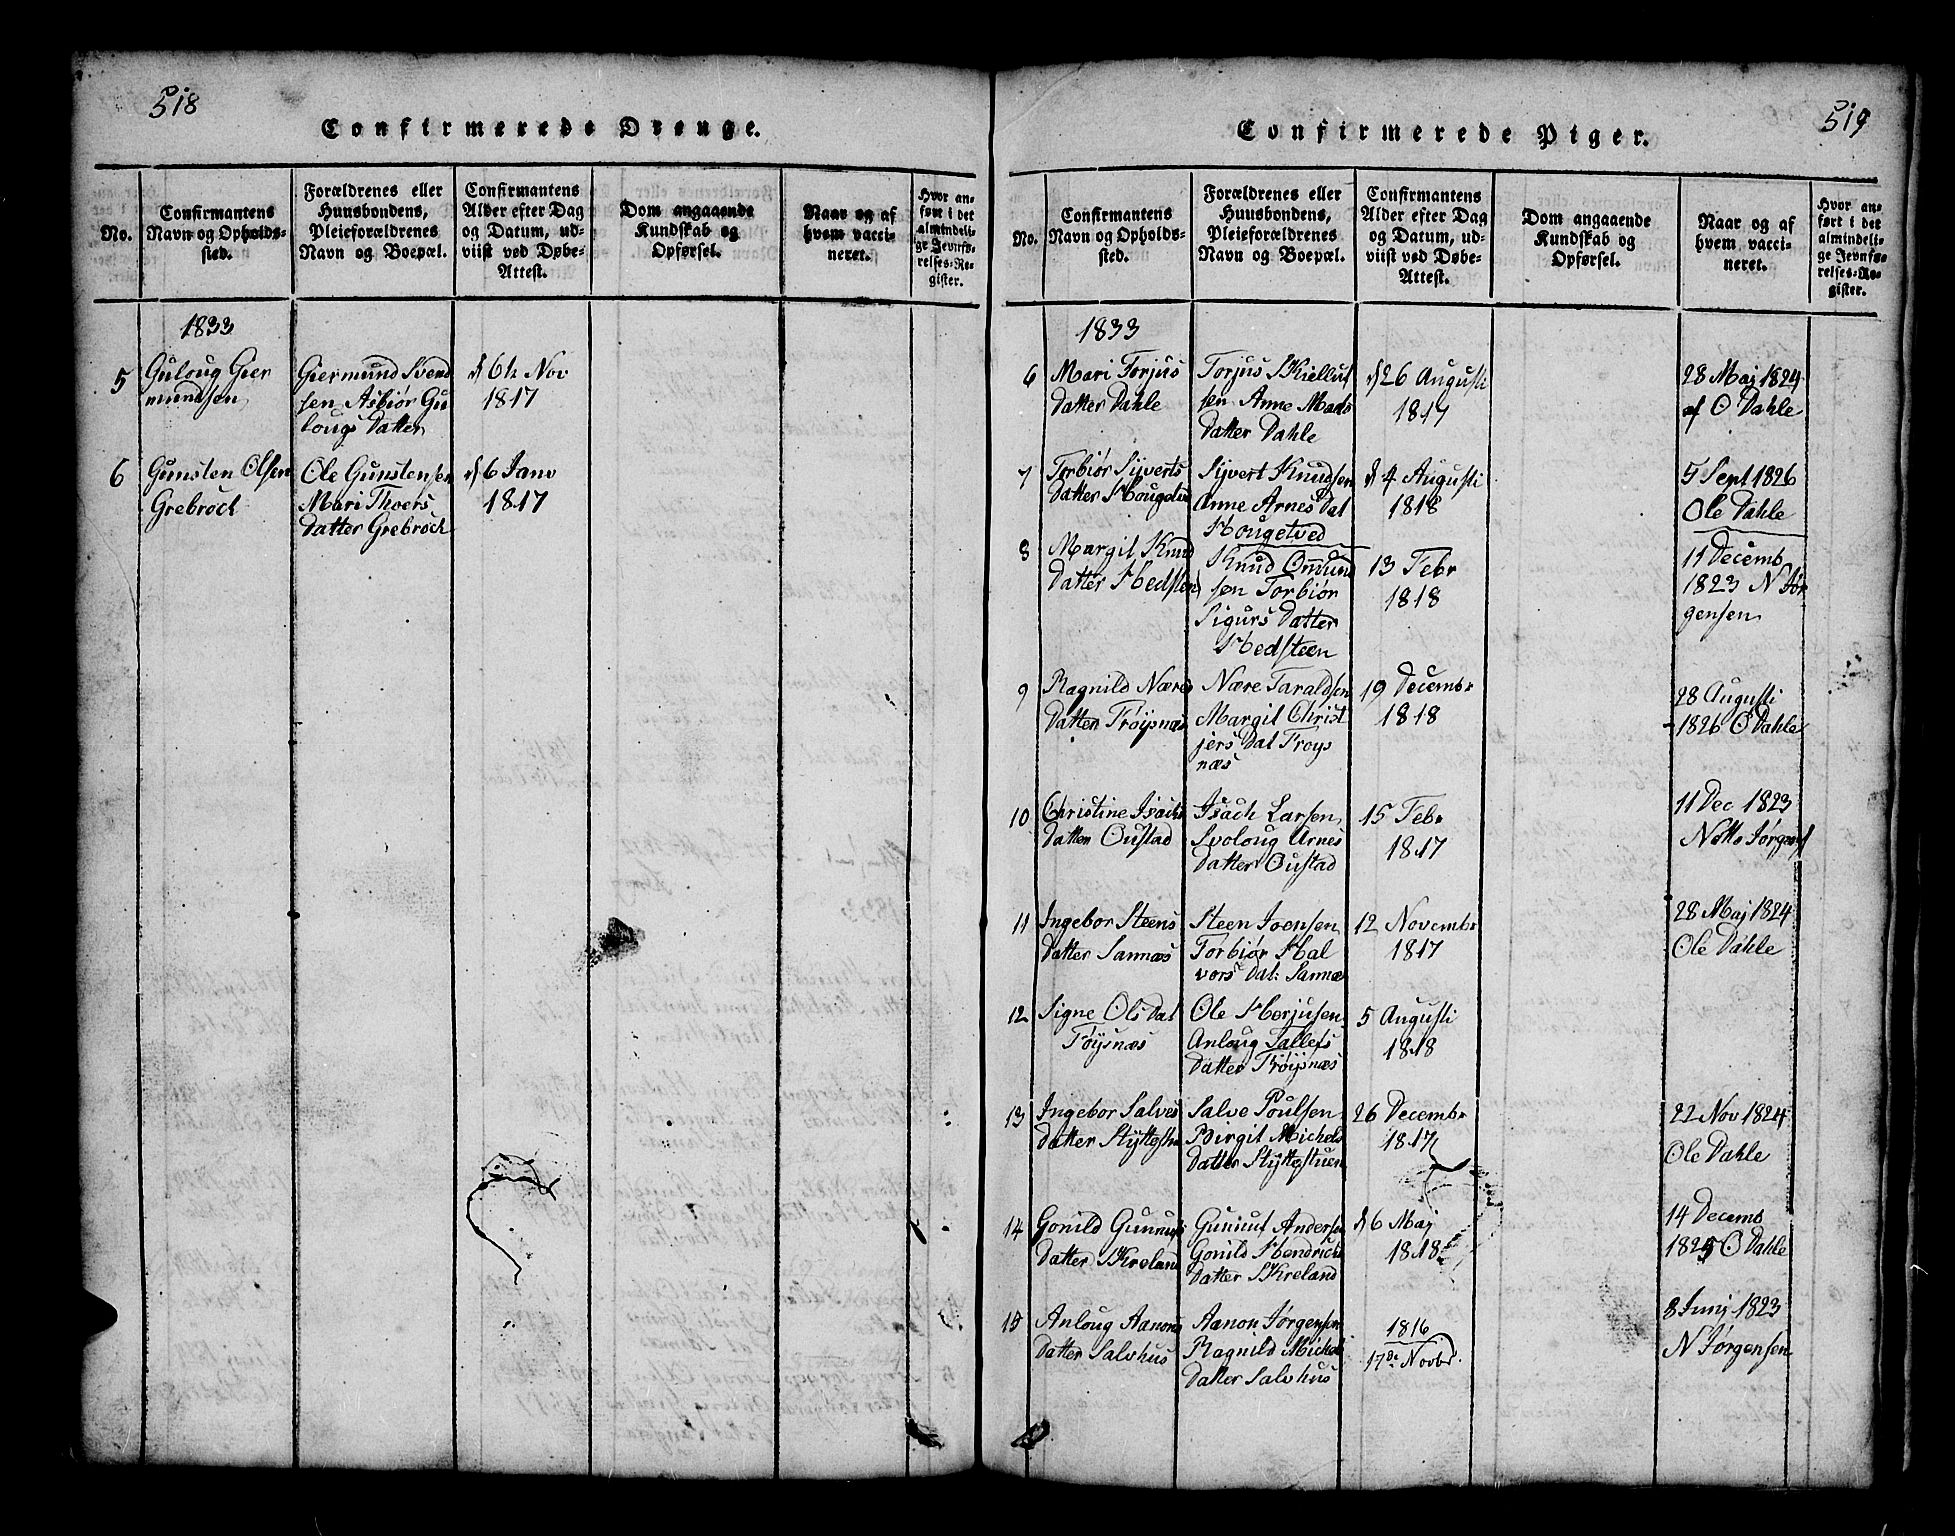 518
Confirmerede Drenge.
No.
Confirmantens
Navn og Opholds-
sted.
Forældrenes eller
Huusbondens,
Pleieforældrenes
Navn og Boepæl.
Confirmantens
Alder efter Dag
og Datum, ud-
viist ved Døbe-
Attest.
Dom angaaende
Kundskab og
Opførsel.
Naar og af
hvem vacci-
neret.
Hvor an-
ført i det
almindeli-
ge Jevnfø-
relses-Re-
gister.
1833
5
Guloug Gier
mundsen
Giermund Svend
sen Asbiør Gu
lougs Datter
d 6h Nov
1817
6
Gunsten Olsen
Grebroch
Ole Gunstensen
Mari Thoers
Datter Grebroch
d 6 Janv
1817
519
Confirmerede Piger.
No.
Confirmantens
Navn og Opholds-
sted.
Forældrenes eller
Huusbondens,
Pleieforældrenes
Navn og Boepæl.
Confirmantens
Alder efter Dag
og Datum, ud-
viist ved Døbe-
Attest.
Dom angaaende
Kundskab og
Opførsel.
Naar og af
hvem vacci-
neret.
Hvor an-
ført i det
almindeli-
ge Jevnfø-
relses-Re-
gister.
1833
6
Mari Torjus
Datter Dahle
Torjus Skiellus
sen Anne Mads
Datter Dahle
d 26 Augusti
1817
28 Maj 1824
af O Dahle
7
Torbiør Sÿverts
Datter Hougetve
Sÿvert Knudsen
Anne Arnes Dat
Hougetved
d 4 Augusti
1818
5 Sept 1826
Ole Dahle
8
Margit Knud
Datter Hedsten
Knud Omund
sen Torbiør
Sigurs Datter
Hedsteen
13 Febr
1818
11 Decemb
1823 N Jør
gensen
9
Ragnild Næres
Datter Frøÿsnæs
Nære Taraldsen
Margit Christ
jers Dat Froÿs
næs
19 Decembr
1818
28 Augusti
1826 O Dahle
10
Christine Isachs
Datter Oustad
Isach Larsen
Svoloug Arnes
Datter Oustad
15 Febr
1817
11 Dec 1823
Jørgens
11
Ingebor Steens
Datter Sannæs
Steen Joensen
Torbiør Hal
vors Dat: Sannæs
12 Novembr
1817
28 Maj 1824
Ole Dahle
12
Signe Ols Dat
Frøÿsnæs
Ole Herjusen
Anloug Tallefs
Datter Frøÿsnæs
5 Augusti
1818
13
Ingebor Salves
Datter Stÿttestu
Salve Poulsen
Birgit Michels
Datter Stÿttestuen
26 Decembr
1817
22 Nov 1824
Ole Dahle
14
Gonild Gunnufs
Datter Skreland
Gunuf Andersen
Gonild Hendrichs
Datter Skreland
d 6 Maj
1818
14 Decemb
1825 O Dahle
15
Anloug Aanons
Datter Salvhus
Aanon Jørgensen
Ragnild Michels
Datter Salvhus
1816
17de Novbr.
8 Junj 1823
N Jørgensen